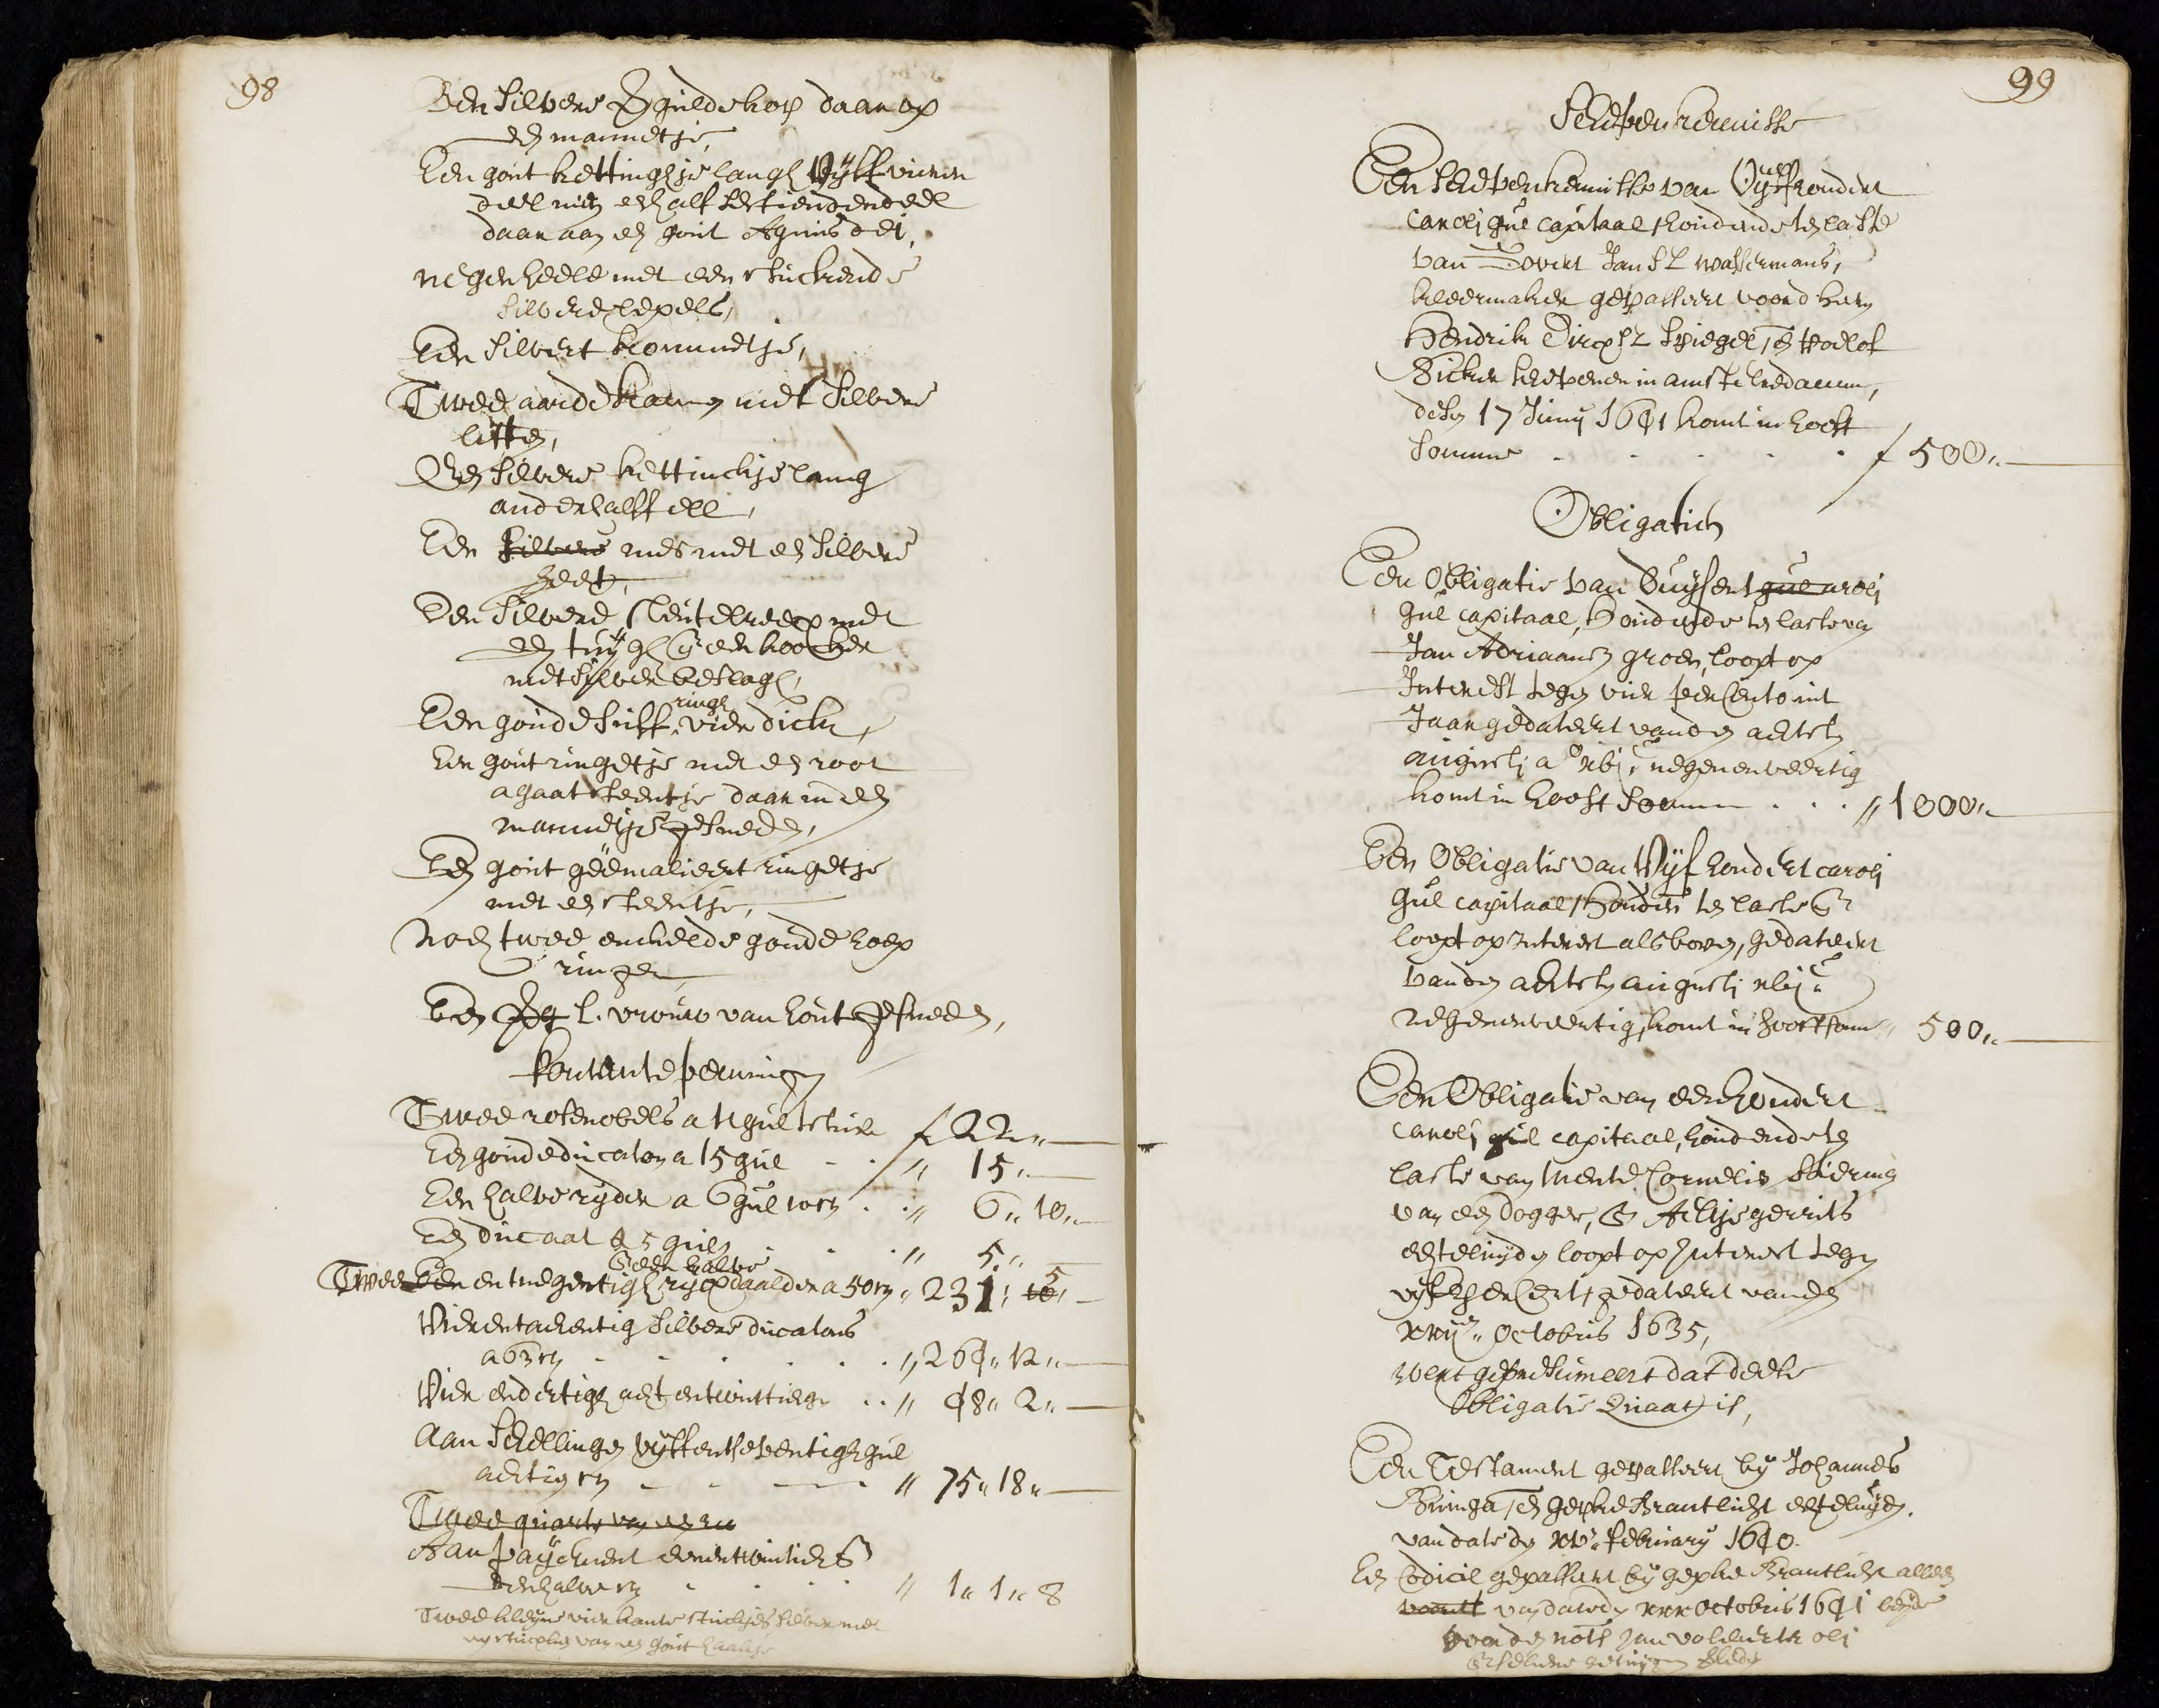 98
Een silvere Vergulde kop daar op
een mannetje,
Een gout kettinghje langh vyff vieren
deel min een half sestiendendeel
daar aan een gout Agnus dei,
negen heele met een stuckende
silvere lepels,
Een silvert kommetje,
Twee aarde kannen met silvere
litten,
Een silvere kettinckje lang
anderhalff ell,
Een silvere mes met een silvere
heet,
Een silvere sleutelreecx met
een tuygh en een koocker
met silver beslagh,
ringh
Een goude vier dicke,
Een gout ringetje met een root
agaat steentje daar in een
mannetje gesneden,
Een gout geëmalieert ringetje
met een steentje,
Noch twee enckelde goude hoep
ringen
Een L. vrouw van hout gesneden,
Kontante penningen
Twee rosenobels a 11 gul tstuk f 22"
Een goude ducaton a 15 gul " 15"
Een halve ryder a 6 gul 10 st " 6" 10"
Een ducaat a 5 gul " 5"
en een halve
Twee Een en tnegentigh rycxdaalder a 50 st " 231" 5 10"
Vierentachentig silvere ducatons
a 63 st " 264" 12"
Vier endertigh acht entwinttiegh " 48" 2"
Aan schellingen vyffentseventigh gul
achtien st " 75" 18"
Twee quarts van
Aan payement eenentwintich st
een halve st " 1" 1" 8
Twee kleyne vierkante stuckjes silver met
van een gout haakje
99
Schepenkennisse
Een schepenkennisse van Vyffhondert
caroli gul capitaal houdende ten laste
van Govert Jansz Wassermans,
kleermaker gepasseert voor d heren
Hendrik Dircxsz Spiegel, en Roelof
Bicker schepenen in Amstelredamm,
desen 17 Juny 1641 komt in hooft
somme f 500"
Obligatien
Een Obligatie van Duysent gul caroli
gul capitaal, houdende ten laste van
Jan Adriaansz groen, loopt op
Interest tegen vier per Cento int
Jaar gedateert vanden achtsten
augusti a° xvic negenenveertig
komt in hooft somme " 1000"
Een Obligatie van Vyf hondert caroli
gul capitaal, houden ten laste
loopt op interest als boven, gedateert
vanden achtsten augusti xvic
negenenveertig, komt in hooft som " 500"
Een Obligatie van een hondert
caroli gul capitaal, houdende ten
laste van Mente Cornelis
van een dogger, en Aeltje gerrits
echteluyden loopt op Interest tegen
vyf per Cent, gedateert vanden
xxii octobris 1635,
wert gepresumeert dat deese
Obligatie Quaat is,
Een Testament gepasseert by Johannes
Bringa, en gepke Brantlicht echteluyden
van date den xv february 1640.
Een Codicil gepassert by gepke Brantlicht alleen
van date den xxx octobris 1641 beyde
voor den nots Jan Volkertsz oli
en sekere getuygen